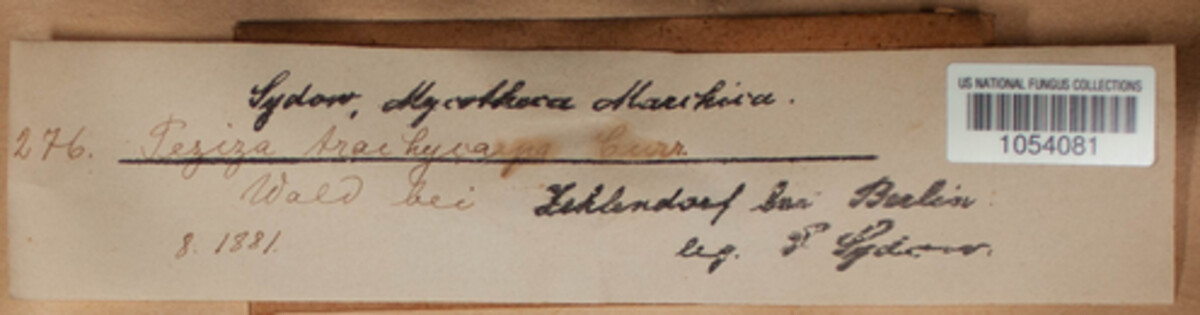 Sydow, Mycotheca Marchica.
276. Peziza trachycarpa Curr.
Wald bei Zehlendorf bei Berlin
8. 1881. leg. P Sydow.
US NATIONAL FUNGUS COLLECTIONS
1054081